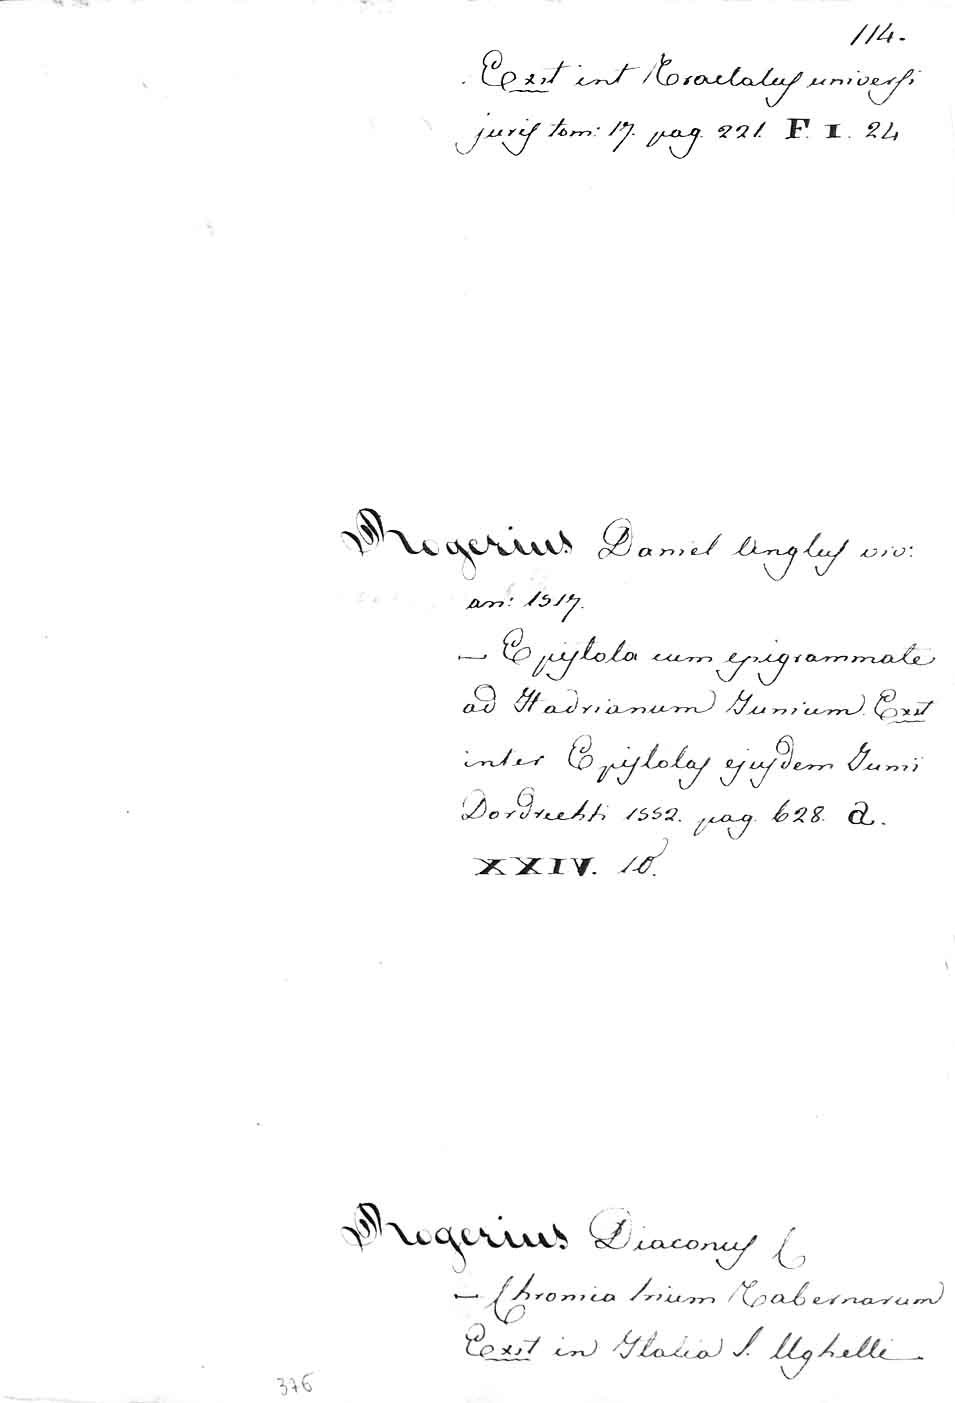 114.
Exit int Tractatus universi
juris tom: 17. pag. 221. F. I. 24
Rogerius Daniel Anglus viv:
an: 1517.
— Epistola cum epigrammate
ad Hadrianum Junium. Exit
inter Epistolas ejusdem Junii
Dordrechti 1552. pag. 628. a.
XXIV. 10.
Rogerius Diaconus
— Chronica trium Tabernarum
Exit in Italia S. Ughelli
376